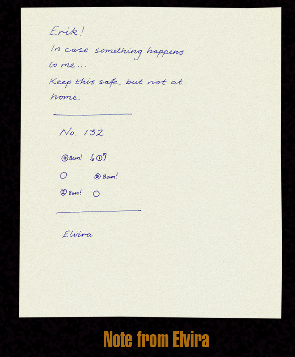 Erik!
In case something happens
to me...
Keep this safe, but not at
home.
No. 132
Bam!
Bam!
Bam!
Elvira
Note from Elvira